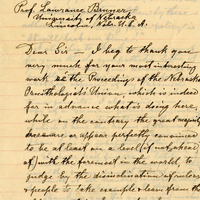 Prof. Lawrance Bruner
University of Nebraska
Lincoln, Neb. U.S.A.
Dear Sir — I beg to thank you
very much for your most interesting
work at the Proceedings of the Nebraska
Ornithologist's Union, which is indeed
far in advance what is doing here,
while on the contrary the great majority
because or appear perfectly convinced
to be at least on a level (if not ahead
of) with the foremost in the world, to
judge by the of
people to take example & learn from